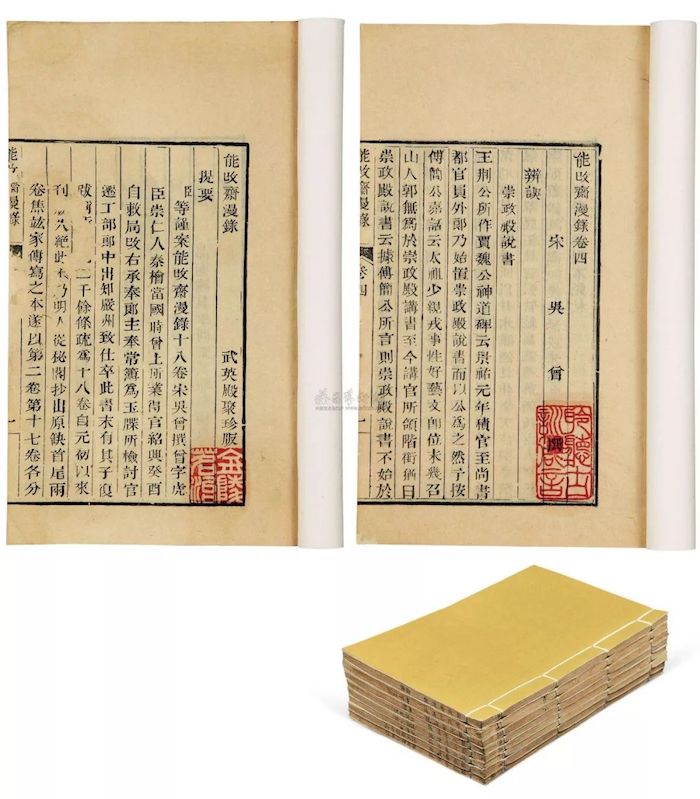 能改齋漫錄 武英殿聚珍版
提要
臣等謹案能改齋漫錄十八卷宋吳曾撰曾字虎
臣崇仁人秦檜當國時曾上所業得官紹興癸酉
自敕局改右承奉郎主奉常簿爲玉牒所檢討官
遷工部郎中出知嚴州致仕卒此書末有其子復
跋 二千餘條疏爲十八卷自元初以來
刊 久絕此本乃明人從秘閣抄出原缺首尾兩
卷焦竑家傳寫之本遂以第二卷第十七卷各分
能改齋漫錄
一
能改齋漫錄卷四
宋 吳 曾 撰
辨誤
崇政殿說書
王荊公所作賈魏公神道碑云景祐元年積官至尚書
都官員外郎乃始置崇政殿說書而以公爲之然予按
傅簡公嘉話云太祖少親戎事性好藝文卽位未幾召
山人郭無爲於崇政殿講書至今講官所領階銜猶曰
崇政殿說書云據傅簡公所言則崇政殿說書不始於
能改齋漫錄
卷四
一
金陵